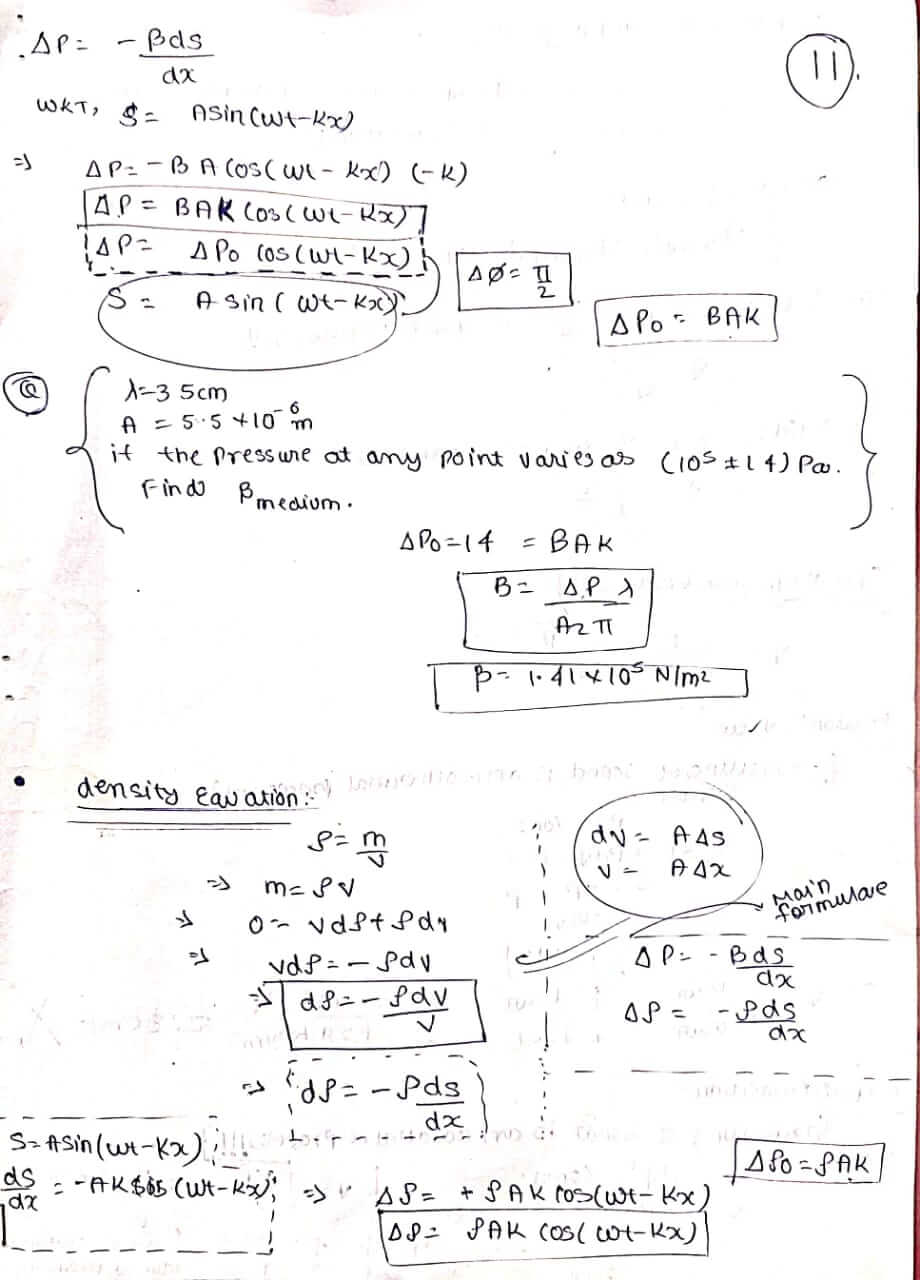 ΔP = - βds/dx
(11).
WKT, S = ASin(wt-Kx)
=> ΔP = -B A Cos(wt - Kx) (-K)
ΔP = BAK Cos(wt-Kx)
ΔP = ΔPo cos(wt-Kx)
S = A sin(wt-Kx)
Δø = π/2
ΔPo = BAK
Q
λ=35cm
A = 5.5 × 10^-6 m
if the pressure at any point varies as (10^5 ± 14) Pa.
Find β medium.
ΔPo = 14 = BAK
B = ΔP λ / A2π
β = 1.41 × 10^5 N/m2
• density Equation :-
ρ = m/V
=> m = ρV
=> 0 = vdρ + ρdv
=> vdρ = - ρdv
=> dρ = - ρdv/V
=> dρ = - ρds/dx
dV = AΔS
V = AΔx
Main formulae
ΔP = - Bds/dx
Δρ = - ρds/dx
S = ASin(wt-Kx)
ds/dx = -AK cos(wt-Kx)
=> Δρ = + ρAK cos(wt-Kx)
Δρ = ρAK cos(wt-Kx)
Δρo = ρAK